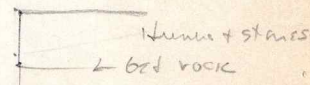 Humus + stones
bed rock